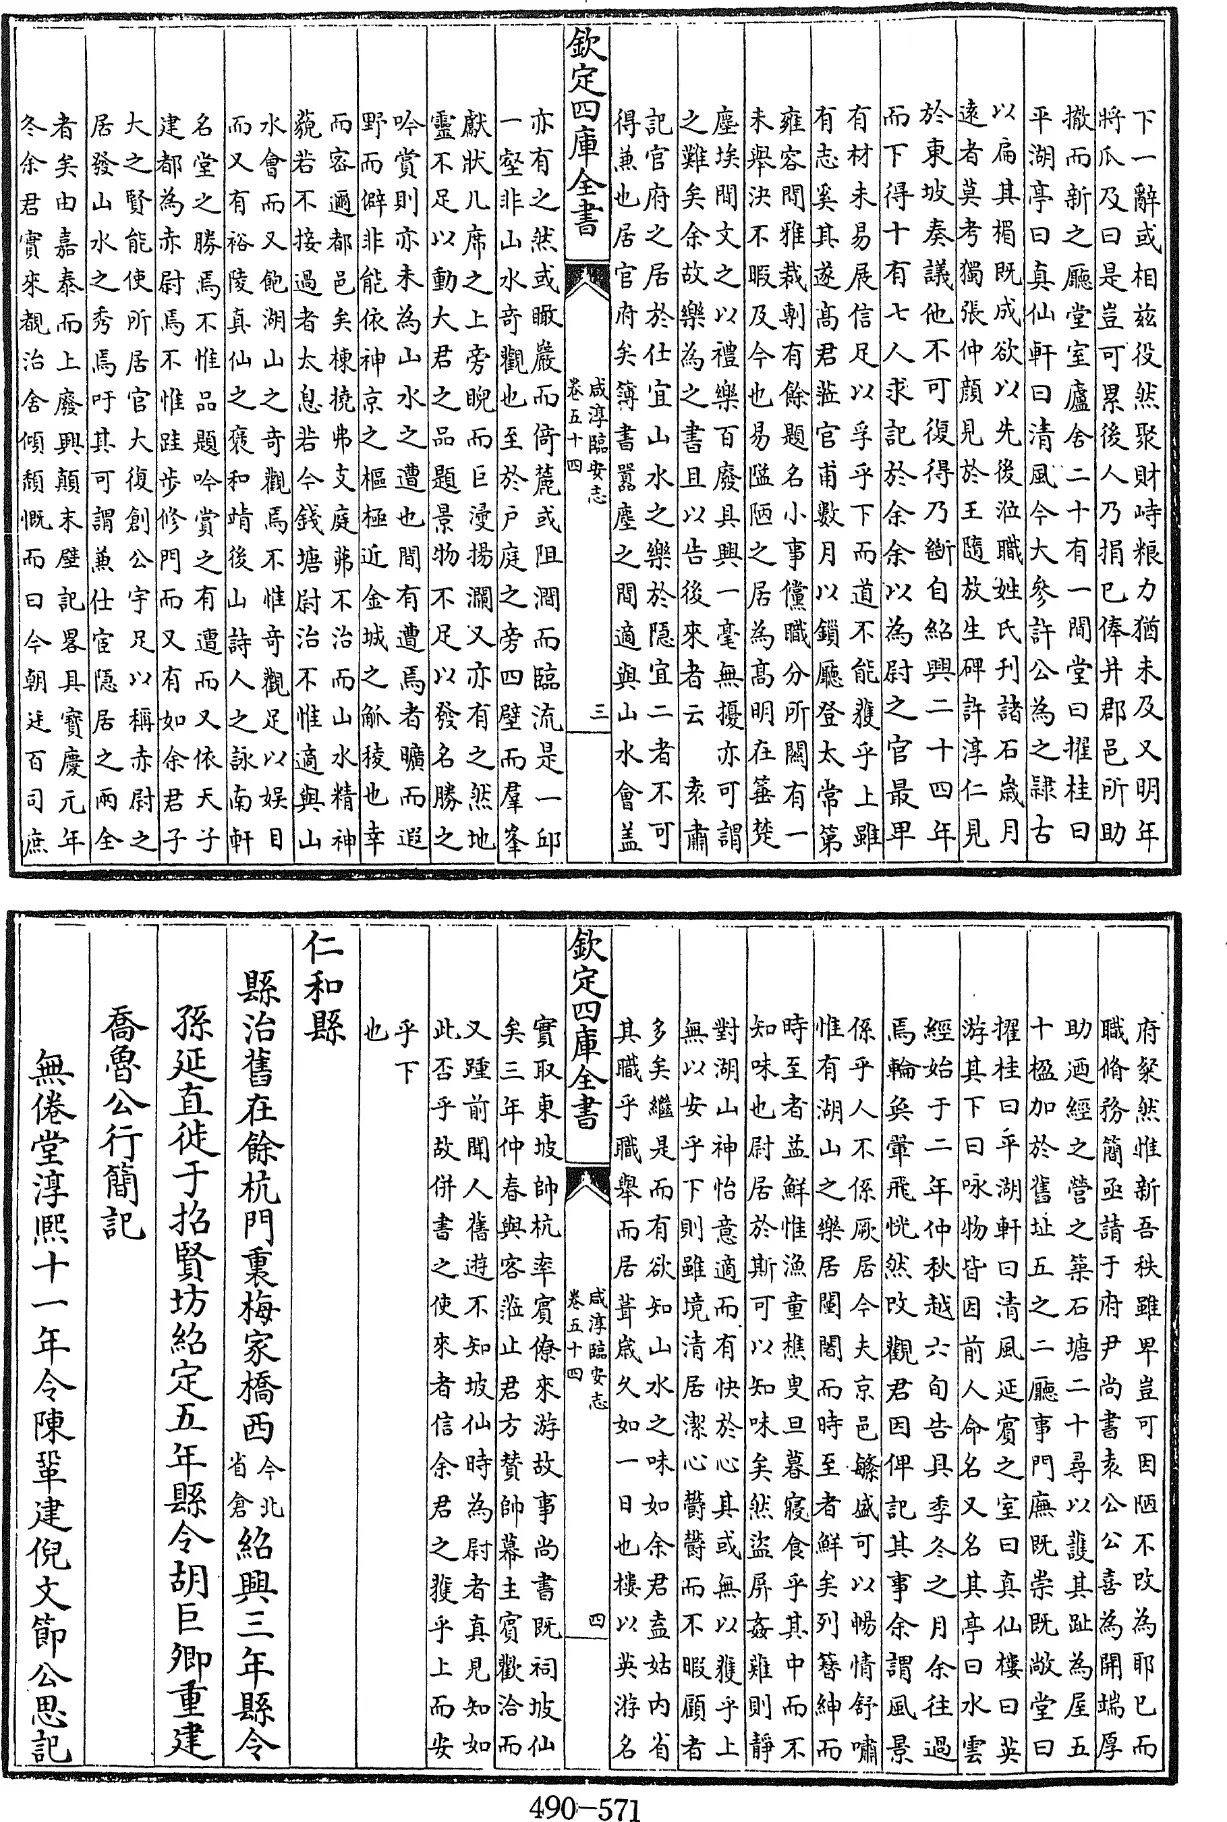 下一辭或相茲役然聚財峙粮力猶未及又明年
將瓜及曰是豈可累後人乃捐已俸并郡邑所助
撤而新之廳堂室廬舍二十有一間堂曰擢桂曰
平湖亭曰真仙軒曰清風今大參許公為之隸古
以扁其楣既成欲以先後涖職姓氏刊諸石嵗月
遠者莫考獨張仲顔見於王隨放生碑許淳仁見
於東坡奏議他不可復得乃斷自紹興二十四年
而下得十有七人求記於余余以為尉之官最卑
有材未易展信足以孚乎下而道不能獲乎上雖
有志奚其遂髙君涖官甫數月以鎖廳登太常第
雍容閒雅裁剸有餘題名小事儻職分所闗有一
未舉決不暇及今也易隘陋之居為髙明在菙楚
塵埃間文之以禮樂百廢具興一毫無擾亦可謂
之難矣余故樂為之書且以告後來者云　袁肅
記官府之居於仕宜山水之樂於隱宜二者不可
得兼也居官府矣簿書囂塵之間適與山水會盖
欽定四庫全書
咸淳臨安志
卷五十四
三
亦有之然或瞰嚴而倚麓或阻澗而臨流是一邱
一壑非山水奇觀也至於户庭之旁四壁而羣峯
獻狀几席之上旁睨而巨浸揚瀾又亦有之然地
靈不足以動大君之品題景物不足以發名勝之
吟賞則亦未為山水之遭也間有遭焉者曠而遐
野而僻非能依神京之樞極近金城之觚稜也幸
而密邇都邑矣棟撓弗支庭茀不治而山水精神
藐若不接過者太息若今錢塘尉治不惟適與山
水會而又飽湖山之奇觀焉不惟奇觀足以娱目
而又有裕陵真仙之褒和靖後山詩人之詠南軒
名堂之勝焉不惟品題吟賞之有遭而又依天子
建都為赤尉焉不惟跬步修門而又有如余君子
大之賢能使所居官大復創公宇足以稱赤尉之
居發山水之秀焉吁其可謂兼仕宦隱居之兩全
者矣由嘉泰而上廢興顛末壁記畧具寳慶元年
冬余君實來覩治舍傾頽慨而曰今朝廷百司庶
府粲然惟新吾秩雖卑豈可因陋不改為耶已而
職脩務簡亟請于府尹尚書袁公公喜為開端厚
助迺經之營之築石塘二十尋以護其趾為屋五
十楹加於舊址五之二廳事門廡既崇既敞堂曰
擢桂曰平湖軒曰清風延賓之室曰真仙樓曰英
游其下曰咏物皆因前人命名又名其亭曰水雲
經始于二年仲秋越六旬告具季冬之月余往過
焉輪奐翬飛恍然改觀君因俾記其事余謂風景
係乎人不係厥居今夫京邑繁盛可以暢情舒嘯
惟有湖山之樂居闤闠而時至者鮮矣列簪紳而
時至者益鮮惟漁童樵叟旦暮寢食乎其中而不
知味也尉居於斯可以知味矣然盜屏姦雖則靜
對湖山神怡意適而有快於心其或無以獲乎上
無以安乎下則雖境清居潔心鬱鬱而不暇顧者
多矣繼是而有欲知山水之味如余君盍姑内省
其職乎職舉而居葺嵗久如一日也樓以英游名
欽定四庫全書
咸淳臨安志
卷五十四
四
實取東坡帥杭率賓僚來游故事尚書既祠坡仙
矣三年仲春與客涖止君方贊帥幕主賓歡洽而
又踵前聞人舊遊不知坡仙時為尉者真見知如
此否乎故併書之使來者信余君之獲乎上而安
乎下
也
仁和縣
縣治舊在餘杭門裏梅家橋西今北省倉紹興三年縣令
孫延直徙于招賢坊紹定五年縣令胡巨卿重建
喬魯公行簡記
無倦堂淳熙十一年令陳鞏建倪文節公思記
490-571